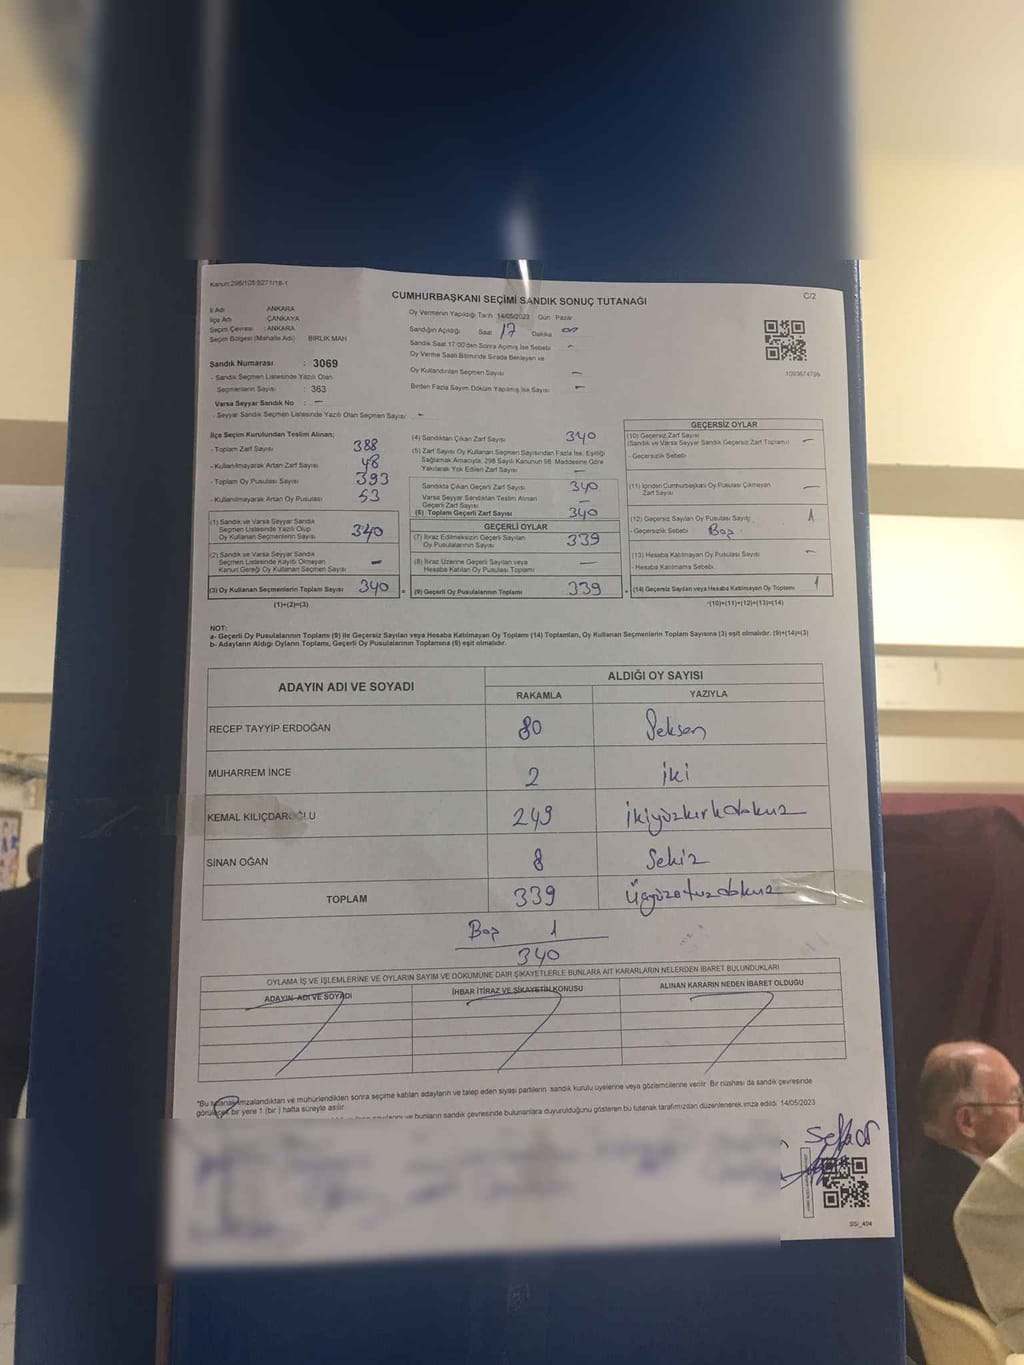 Kanun:298/105;6271/18-1
C/2
CUMHURBAŞKANI SEÇİMİ SANDIK SONUÇ TUTANAĞI
İl Adı ANKARA
İlçe Adı ÇANKAYA
Seçim Çevresi : ANKARA
Seçim Bölgesi (Mahalle Adı) BİRLİK MAH
Sandık Numarası : 3069
- Sandık Seçmen Listesinde Yazılı Olan
Seçmenlerin Sayısı : 363
Varsa Seyyar Sandık No : -
- Seyyar Sandık Seçmen Listesinde Yazılı Olan Seçmen Sayısı -
Oy Vermenin Yapıldığı Tarih 14/05/2023 Gün : Pazar
Sandığın Açıldığı Saat 17 Dakika 00
Sandık Saat 17:00'den Sonra Açılmış İse Sebebi -
Oy Verme Saati Bitiminde Sırada Bekleyen ve
Oy Kullandırılan Seçmen Sayısı -
Birden Fazla Sayım Döküm Yapılmış İse Sayısı -
1093674799
İlçe Seçim Kurulundan Teslim Alınan;
- Toplam Zarf Sayısı 388
- Kullanılmayarak Artan Zarf Sayısı 48
- Toplam Oy Pusulası Sayısı 393
- Kullanılmayarak Artan Oy Pusulası 53
(1) Sandık ve Varsa Seyyar Sandık
Seçmen Listesinde Yazılı Olup
Oy Kullanan Seçmenlerin Sayısı 340
(2) Sandık ve Varsa Seyyar Sandık
Seçmen Listesinde Kayıtlı Olmayan
Kanun Gereği Oy Kullanan Seçmen Sayısı -
(3) Oy Kullanan Seçmenlerin Toplam Sayısı 340 =
(1)+(2)=(3)
(4) Sandıktan Çıkan Zarf Sayısı 340
(5) Zarf Sayısı Oy Kullanan Seçmen Sayısından Fazla İse; Eşitliği
Sağlamak Amacıyla; 298 Sayılı Kanunun 98. Maddesine Göre
Yakılarak Yok Edilen Zarf Sayısı -
Sandıkta Çıkan Geçerli Zarf Sayısı 340
Varsa Seyyar Sandıktan Teslim Alınan
Geçerli Zarf Sayısı -
(6) Toplam Geçerli Zarf Sayısı 340
GEÇERLİ OYLAR
(7) İtiraz Edilmeksizin Geçerli Sayılan
Oy Pusulalarının Sayısı 339
(8) İtiraz Üzerine Geçerli Sayılan veya
Hesaba Katılan Oy Pusulası Toplamı -
(9) Geçerli Oy Pusulalarının Toplamı 339 +
GEÇERSİZ OYLAR
(10) Geçersiz Zarf Sayısı
(Sandık ve Varsa Seyyar Sandık Geçersiz Zarf Toplamı) -
- Geçersizlik Sebebi
(11) İçinden Cumhurbaşkanı Oy Pusulası Çıkmayan
Zarf Sayısı -
(12) Geçersiz Sayılan Oy Pusulası Sayısı 1
- Geçersizlik Sebebi Boş
(13) Hesaba Katılmayan Oy Pusulası Sayısı -
- Hesaba Katılmama Sebebi
(14) Geçersiz Sayılan veya Hesaba Katılmayan Oy Toplamı 1
(10)+(11)+(12)+(13)=(14)
NOT:
a- Geçerli Oy Pusulalarının Toplamı (9) ile Geçersiz Sayılan veya Hesaba Katılmayan Oy Toplamı (14) Toplamları, Oy Kullanan Seçmenlerin Toplam Sayısına (3) eşit olmalıdır. (9)+(14)=(3)
b- Adayların Aldığı Oyların Toplamı, Geçerli Oy Pusulalarının Toplamına (9) eşit olmalıdır.
ADAYIN ADI VE SOYADI ALDIĞI OY SAYISI
RAKAMLA YAZIYLA
RECEP TAYYİP ERDOĞAN 80 Seksen
MUHARREM İNCE 2 iki
KEMAL KILIÇDAROĞLU 249 ikiyüzkırkdokuz
SİNAN OĞAN 8 Sekiz
TOPLAM 339 Üçyüzotuzdokuz
Boş 1
340
OYLAMA İŞ VE İŞLEMLERİNE VE OYLARIN SAYIM VE DÖKÜMÜNE DAİR ŞİKAYETLERLE BUNLARA AİT KARARLARIN NELERDEN İBARET BULUNDUKLARI
ADAYIN ADI VE SOYADI İHBAR İTİRAZ VE ŞİKAYETİN KONUSU ALINAN KARARIN NEDEN İBARET OLDUĞU
*Bu tutanak imzalandıktan ve mühürlendikten sonra seçime katılan adayların ve talep eden siyasi partilerin sandık kurulu üyelerine veya gözlemcilerine verilir. Bir nüshası da sandık çevresinde
görülecek bir yere 1 (bir ) hafta süreyle asılır.
ve bunların sandık çevresinde bulunanlara duyurulduğunu gösteren bu tutanak tarafımızdan düzenlenerek imza edildi. 14/05/2023
SSI_404